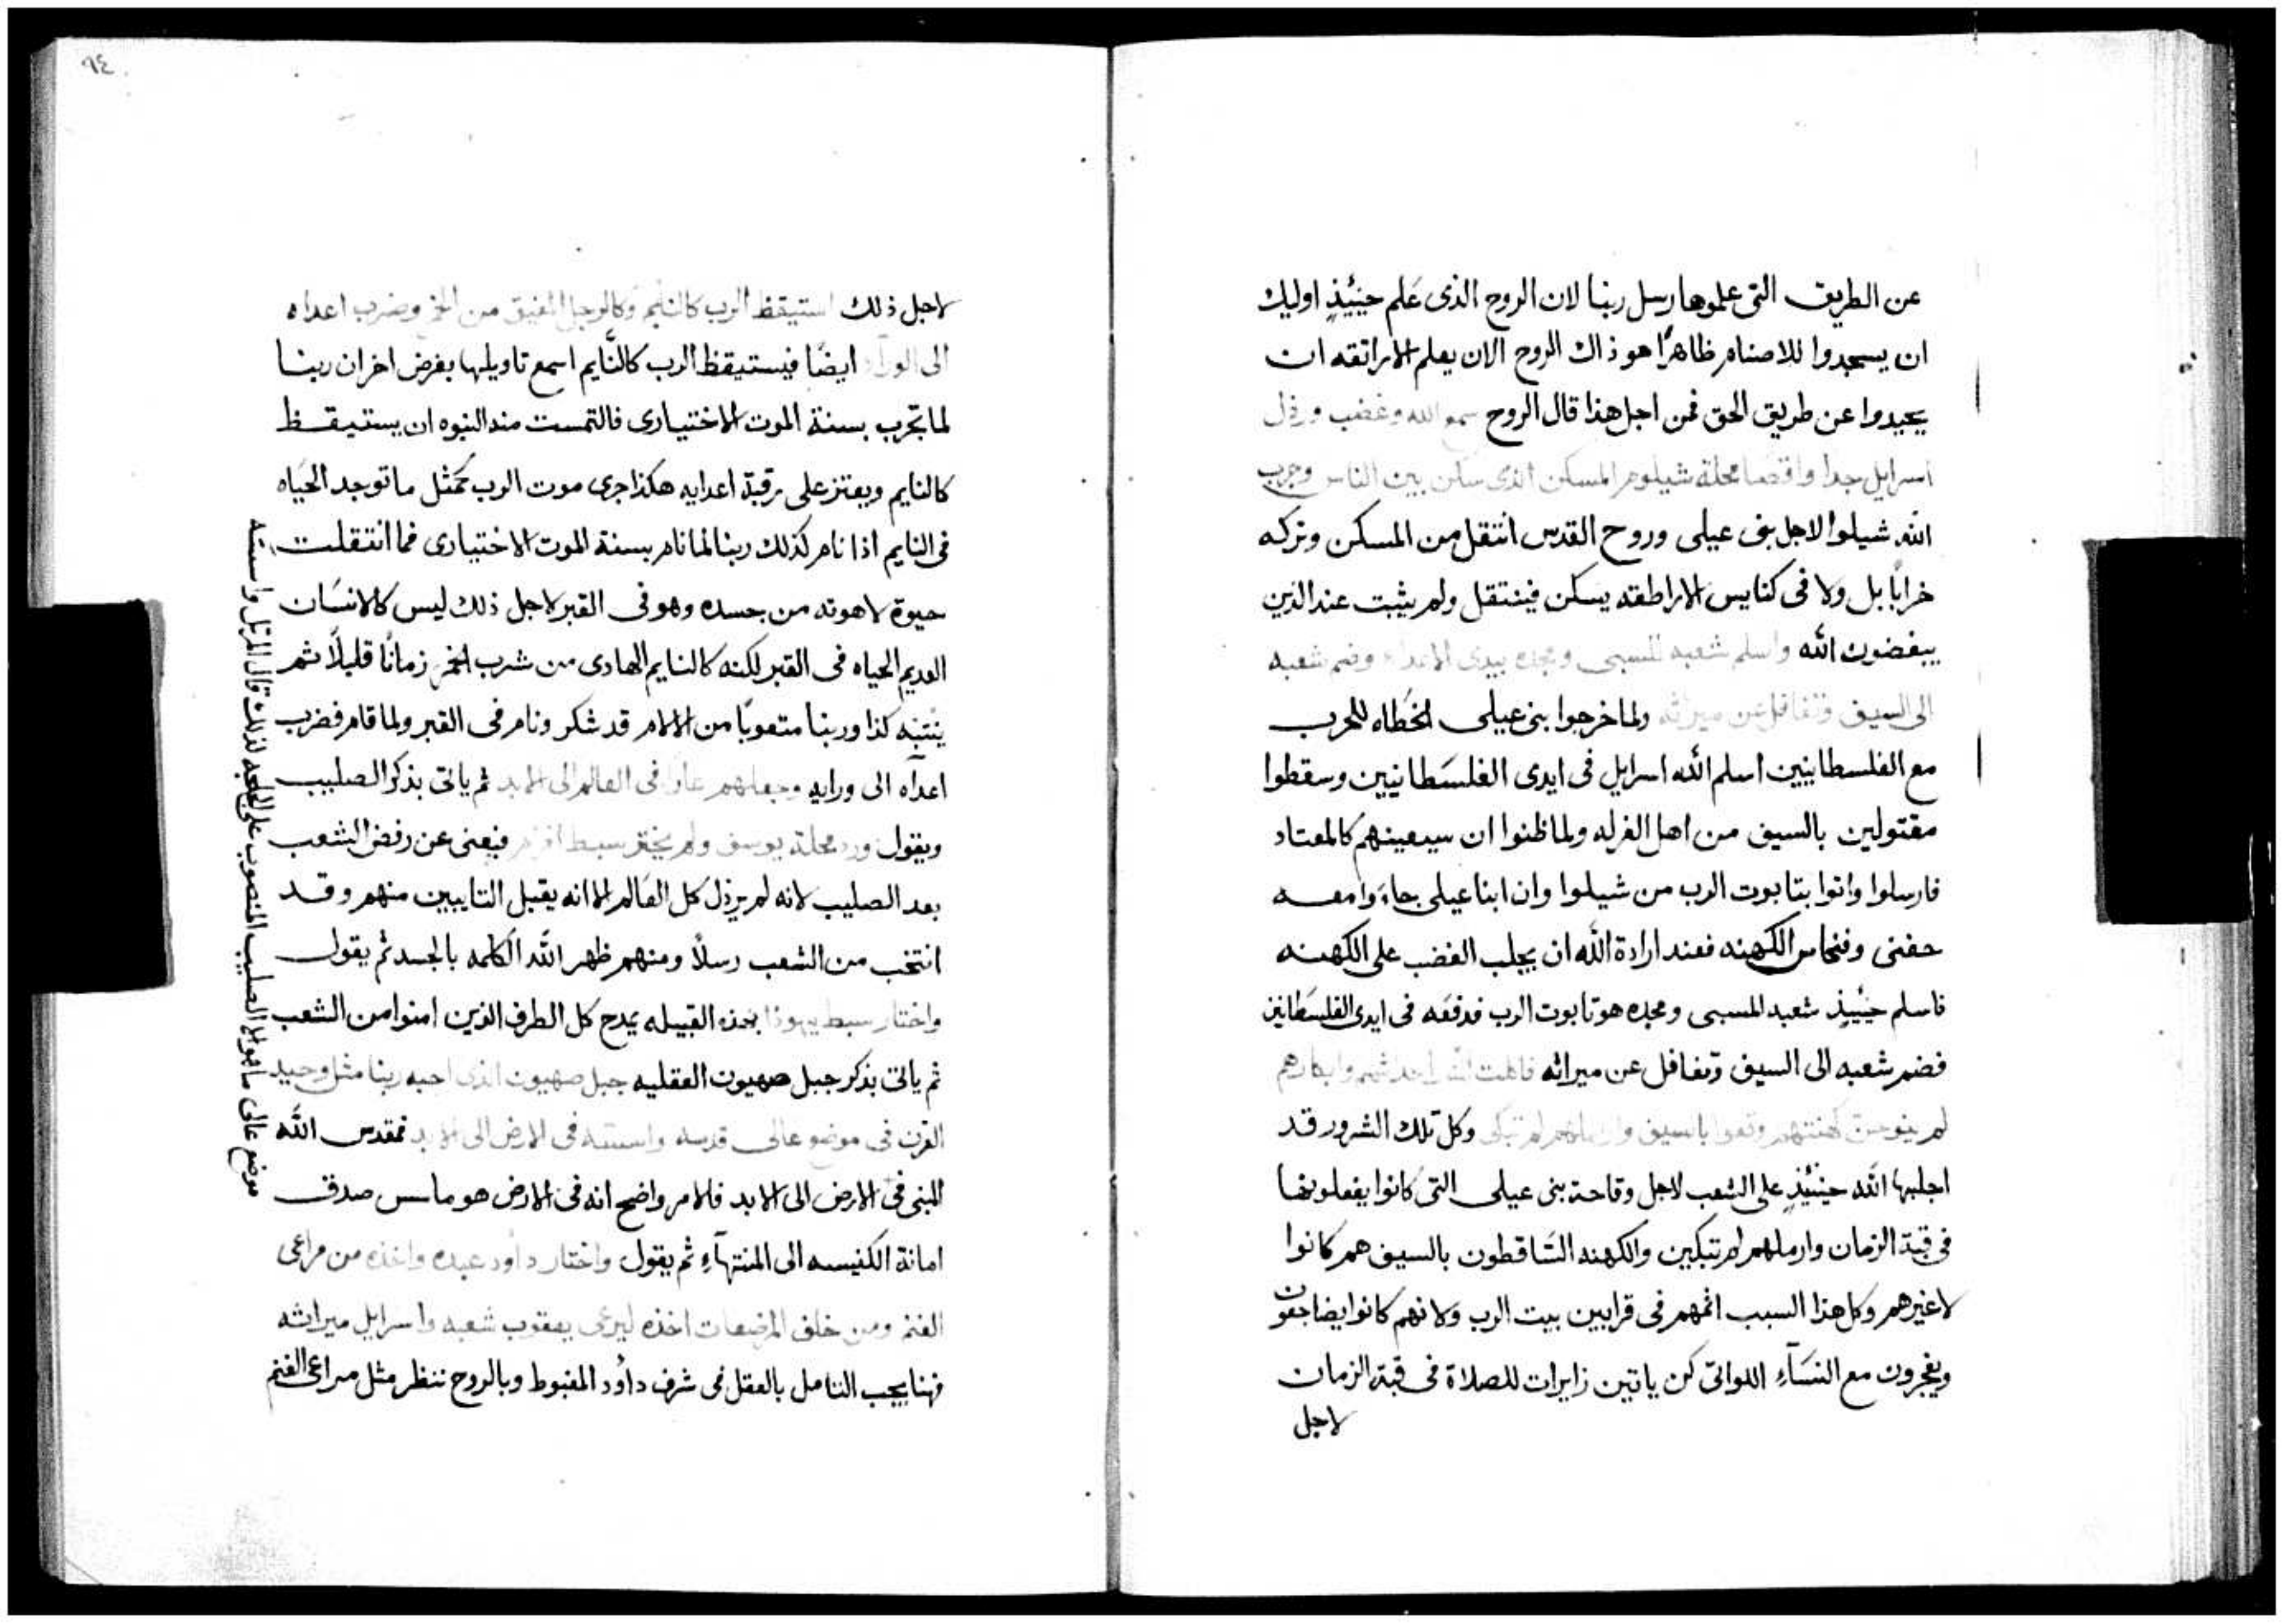 عن الطريق التى علموها رسل ربنا لان الروح الذى عَلم حينَئِذٍ اوليك
ان يسجدوا للاصنام ظاهرًا هو ذاك الروح الان يعلم الاراتقه ان
يحيدوا عن طريق الحق فمن اجل هذا قال الروح سمع الله وغضب ورذل
اسرايل جدا واقصا محلة شيلوم المسكن الذى سكن بين الناس وخرب
الله شيلوا لاجل بنى عيلى وروح القدس انتقل من المسكن وتركه
خرابًا بل ولا فى كنايس الاراطقه يسكن فينتقل ولم يثبت عند الذين
يبغضون الله واسلم شعبه للسبى ومجده بيدى الاعداء وضم شعبه
الى السيف وتغافل عن ميراثه ولما خرجوا بنى عيلى الخطاه للحرب
مع الفلسطانيين اسلم الله اسرايل فى ايدى الفلسَطانيين وسقطوا
مقتولين بالسيف من اهل الغرله ولما ظنوا ان سيعينهم كالمعتاد
فارسلوا واتوا بتابوت الرب من شيلوا وان ابنا عيلى جاءَوا معه
حفنى وفنحاس الكهنه فعند ارادة الله ان يجلب الغضب على الكهنه
فاسلم حينَيذٍ شعبه للسبى ومجده هو تابوت الرب فدفعَه فى ايدى الفلسَطانين
فضم شعبه الى السيف وتغافل عن ميراثه فاكلت النار احداثهم وابكارهم
لم ينوحن كهنتهم وقعوا بالسيف واراملهم لم تبكى وكل تلك الشرور قد
اجلبها الله حينَئِذٍ على الشعب لاجل وقاحة بنى عيلى التى كانوا يفعلونها
فى قبة الزمان وارملهم لم تبكين والكهنه السَاقطون بالسيف هم كانوا
لا غيرهم وكل هذا السبب اثمهم فى قرابين بيت الرب ولانهم كانوا يضاجعون
ويفجرون مع النسَآءِ اللواتى كن ياتين زايرات للصلاة فى قبة الزمان
لاجل
٩٤
لاجل ذلك استيقظ الرب كالنايم وكالرجل المفيق من الخمر وضرب اعداه
الى الورآء ايضًا فيستيقظ الرب كالنَّايم اسمع تاويلها بغرض اخر ان ربنا
لما تجرب بسنة الموت الاختيارى فالتمست منه النبوه ان يستيقظ
كالنايم ويعتز على رقبة اعدايه هكذا جرى موت الرب كمثل ما توجد الحَياه
فى النايم اذا نام كذلك ربنا لما نام بسنة الموت الاختيارى فما انتقلت
حيوة لاهوته من جسده وهو فى القبر لاجل ذلك ليس كالانسَان
العديم الحياه فى القبر لكنه كالنايم الهادى من شرب الخمر زمانًا قليلاً ثم
ينتبَه كذا وربنا متعوبًا من الالام قد شكر ونام فى القبر ولما قام فضرب
اعدآه الى ورايه وجعلهم عارًا فى العالم الى الابد ثم ياتى بذكر الصليب
ويقول ورد محلة يوسف ولم يختر سبط افرام فيعنى عن رفض الشعب
بعد الصليب لانه لم يرذل كل العَالم الا انه يقبل التايبين منهم وقد
انتخب من الشعب رسلاً ومنهم ظهر الله الكلمه بالجسد ثم يقول
واختار سبط يهوذا بهذه القبيله يمدح كل الطرف الذين امنوا من الشعب
ثم ياتى بذكر جبل صهيون العقليه جبل صهيون الذى احبه ربنا مثل وحيد
القرن فى موضع عالى قدسه واسسه فى الارض الى الابد فمقدس الله
المبنى فى الارض الى الابد فالامر واضح انه فى الارض هو ماسس صدق
امانة الكنيسه الى المنتهآءِ ثم يقول واختار داود عبده واخذه من مراعى
الغنم ومن خلف المرضعات اخذه ليرعى يعقوب شعبه واسرايل ميراثه
فهنا يجب التامل بالعقل فى شرف داوُد المغبوط وبالروح ننظر مثل مراعى الغنم
موضع عالى ما هو الا الصليب المنصوب على الجلجله لذلك قال المرتل واسسه